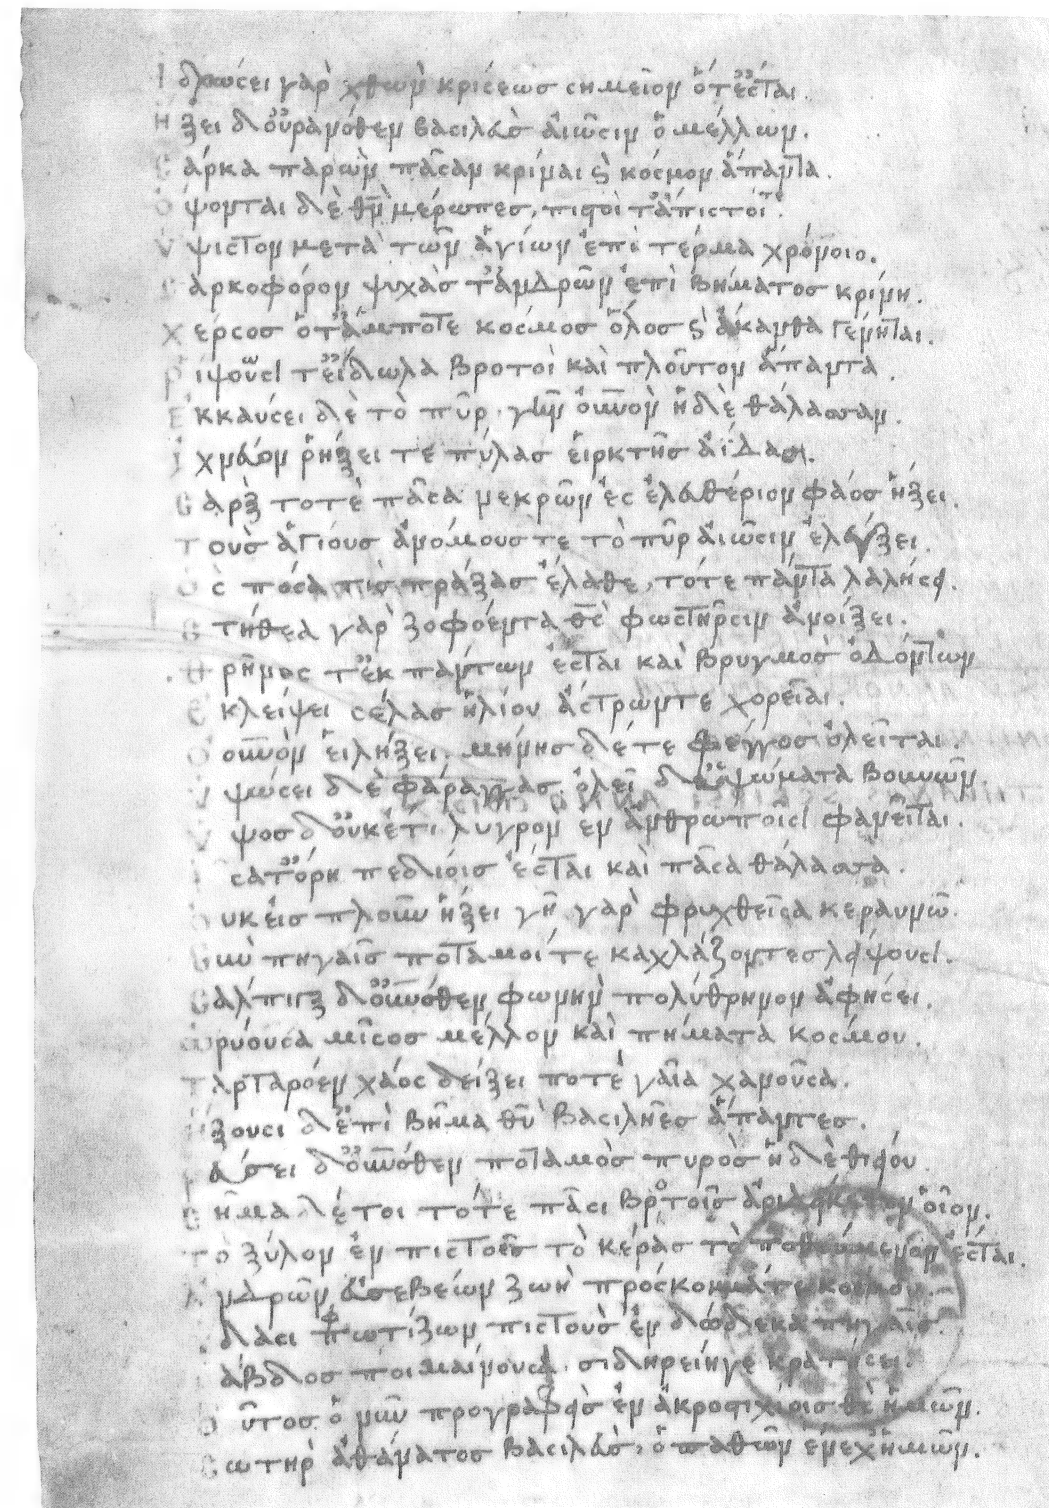 Ἱδρώσει γὰρ χθὼν κρίσεως σημεῖον ὅτ' ἔσται.
Ἥξει δ' οὐρανόθεν βασιλεὺς αἰῶσιν ὁ μέλλων.
Σάρκα παρὼν πᾶσαν κρῖναι ϗ κόσμον ἅπαντα.
Ὄψονται δὲ θν̄ μέροπες, πιστοὶ τ' ἄπιστοί τε.
Ὕψιστον μετὰ τῶν ἁγίων ἐπὶ τέρμα χρόνοιο.
Σαρκοφόρον ψυχὰς τ' ἀνδρῶν ἐπὶ βήματος κρίνη.
Χέρσος ὅτ' ἄν ποτε κόσμος ὅλος ϗ ἄκανθα γένηται.
Ῥίψουσι τ' εἴδωλα βροτοὶ καὶ πλοῦτον ἅπαντα.
Ἐκκαύσει δὲ τὸ πῦρ γῆν οὐνὸν ἠδὲ θάλασσαν.
Ἰχνεύον ῥήξει τε πύλας εἱρκτῆς ἀΐδαο.
Σὰρξ τότε πᾶσα νεκρῶν ἐς ἐλευθέριον φάος ἥξει.
Τοὺς ἁγίους ἀνόμους τε τὸ πῦρ αἰῶσιν ἐλέγξει.
Ὃς πόσα τις πράξας ἔλαθε, τότε πάντα λαλήσει.
Στήθεα γὰρ ζοφόεντα θς̄ φωστῆρσιν ἀνοίξει.
Θρῆνος τ' ἐκ πάντων ἔσται καὶ βρυγμὸς ὀδόντων
Ἐκλείψει σέλας ἡλίου ἄστρων τε χορεῖαι.
Οὐνὸν εἱλήξει. μήνης δέ τε φέγγος ὀλεῖται.
Ὑψώσει δὲ φάραγγας. ὀλεῖ δ' ὑψώματα βουνῶν.
Ὕψος δ' οὐκέτι λυγρὸν ἐν ἀνθρώποισι φανεῖται.
Ἶσα τ' ὄρη πεδίοις ἔσται καὶ πᾶσα θάλασσα.
Οὐκ εἰς πλοῦν ἥξει γῆ γὰρ φρυχθεῖσα κεραυνῶ.
Σὺν πηγαῖς ποταμοί τε καχλάζοντες λείψουσι.
Σάλπιγξ δ' οὐνόθεν φωνὴν πολύθρηνον ἀφήσει.
Ὠρύουσα μῖσος μέλλον καὶ πήματα κόσμου.
Ταρταρόεν χάος δείξει ποτὲ γαῖα χανοῦσα.
Ἥξουσι δ' ἐπὶ βῆμα θῡ βασιλῆες ἅπαντες.
Ῥεύσει δ' οὐνόθεν ποταμὸς πυρὸς ἠδὲ θείου.
Σῆμα δέ τοι τότε πᾶσι βροτοῖς ἀριδείκετον οἷον.
Τὸ ξύλον ἐν πιστοῖς τὸ κέρας τὸ ποθούμενον ἔσται.
Ἀνδρῶν εὐσεβέων ζωὴ πρόσκομμά τε κόσμου.
Ὕδασι φωτίζων πιστοὺς ἐν δώδεκα πηγαῖς.
Ῥάβδος ποιμαίνουσα σιδηρείη γε κρατήσει.
Οὗτος ὁ νῦν προγραφεὶς ἐν ἀκροστιχίοις θς̄ ἡμῶν.
Σωτὴρ ἀθάνατος βασιλεὺς, ὁ παθὼν ἕνεχ' ἡμῶν.